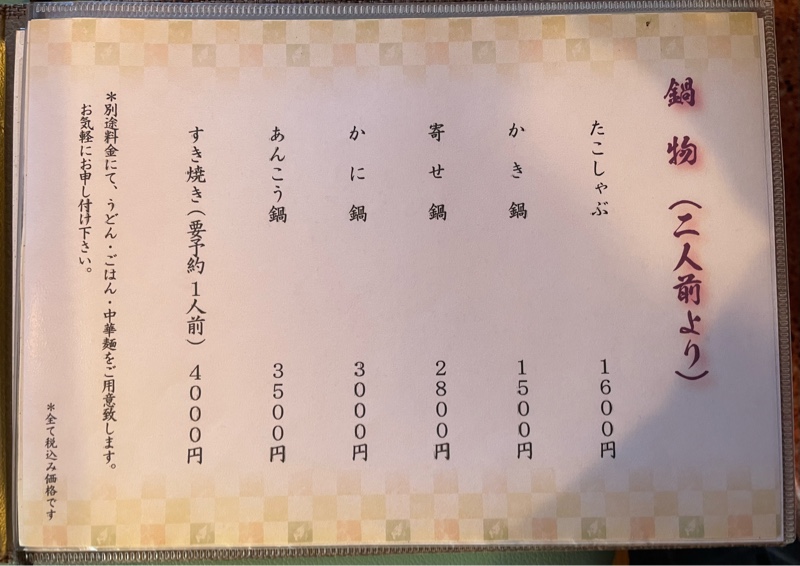 鍋物（二人前より）
たこしゃぶ　１６００円
かき鍋　１５００円
寄せ鍋　２８００円
かに鍋　３０００円
あんこう鍋　３５００円
すき焼き（要予約 １人前）４０００円
＊別途料金にて、うどん・ごはん・中華麺をご用意致します。
お気軽にお申し付け下さい。
＊全て税込み価格です